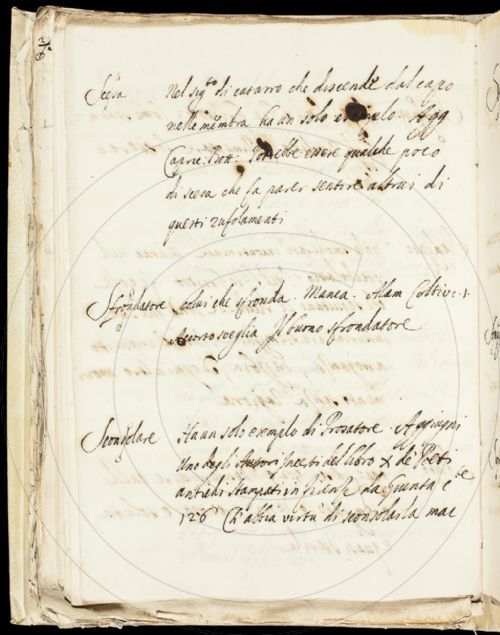 Scesa Nel sig.to di catarro che discende dal capo
nelle mẽmbra ha un solo esempio Agg
Capric: Bott: Potrebbe essere qualche poco
di scesa che fa parer sentire altrui di
questi zufolamenti
Sfrondatore colui che sfronda. Manca. Alam Coltiv: 1.
Accorto sveglia Il buono sfrondatore
Sconsolare Ha un solo esempio di Prosatore. Aggiugni
Uno degli Autori del libro X de Poeti
antichi stampati in firenze da
126 Ch' abbia virtù di sconsolarla mae